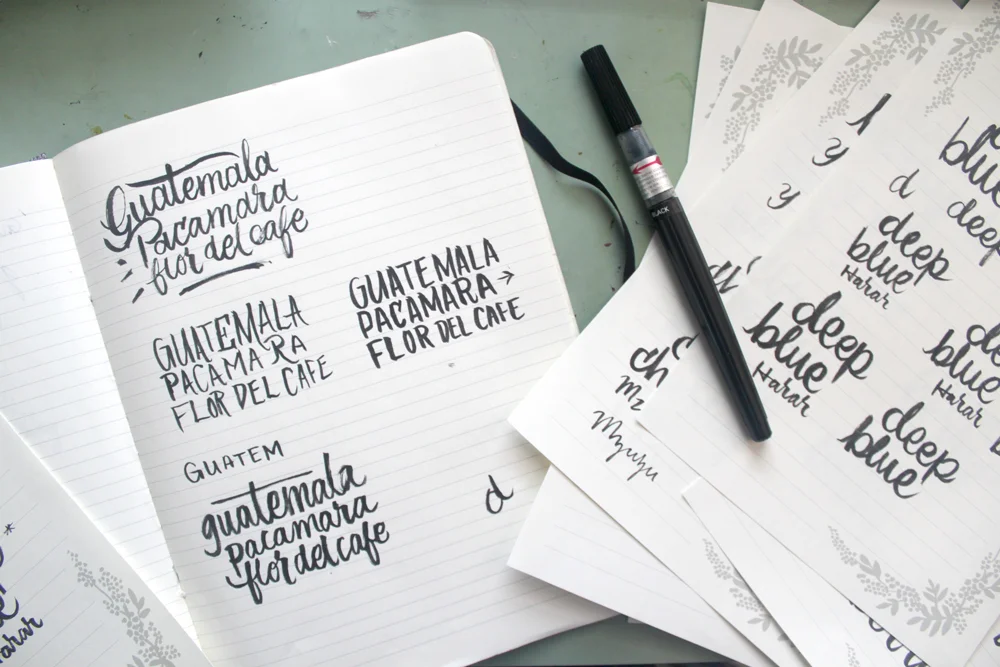 Guatemala
Pacamara
flor del cafe
GUATEMALA
PACAMARA
FLOR DEL CAFE
GUATEMALA
PACAMARA→
FLOR DEL CAFE
GUATEM
guatemala
pacamara
flor del cafe
d
BLACK
y
y
ch
Mz
d
deep
blue
deep
blue
Harar
deep
blue
Harar
deep
blue
Harar
deep
blue
Harar